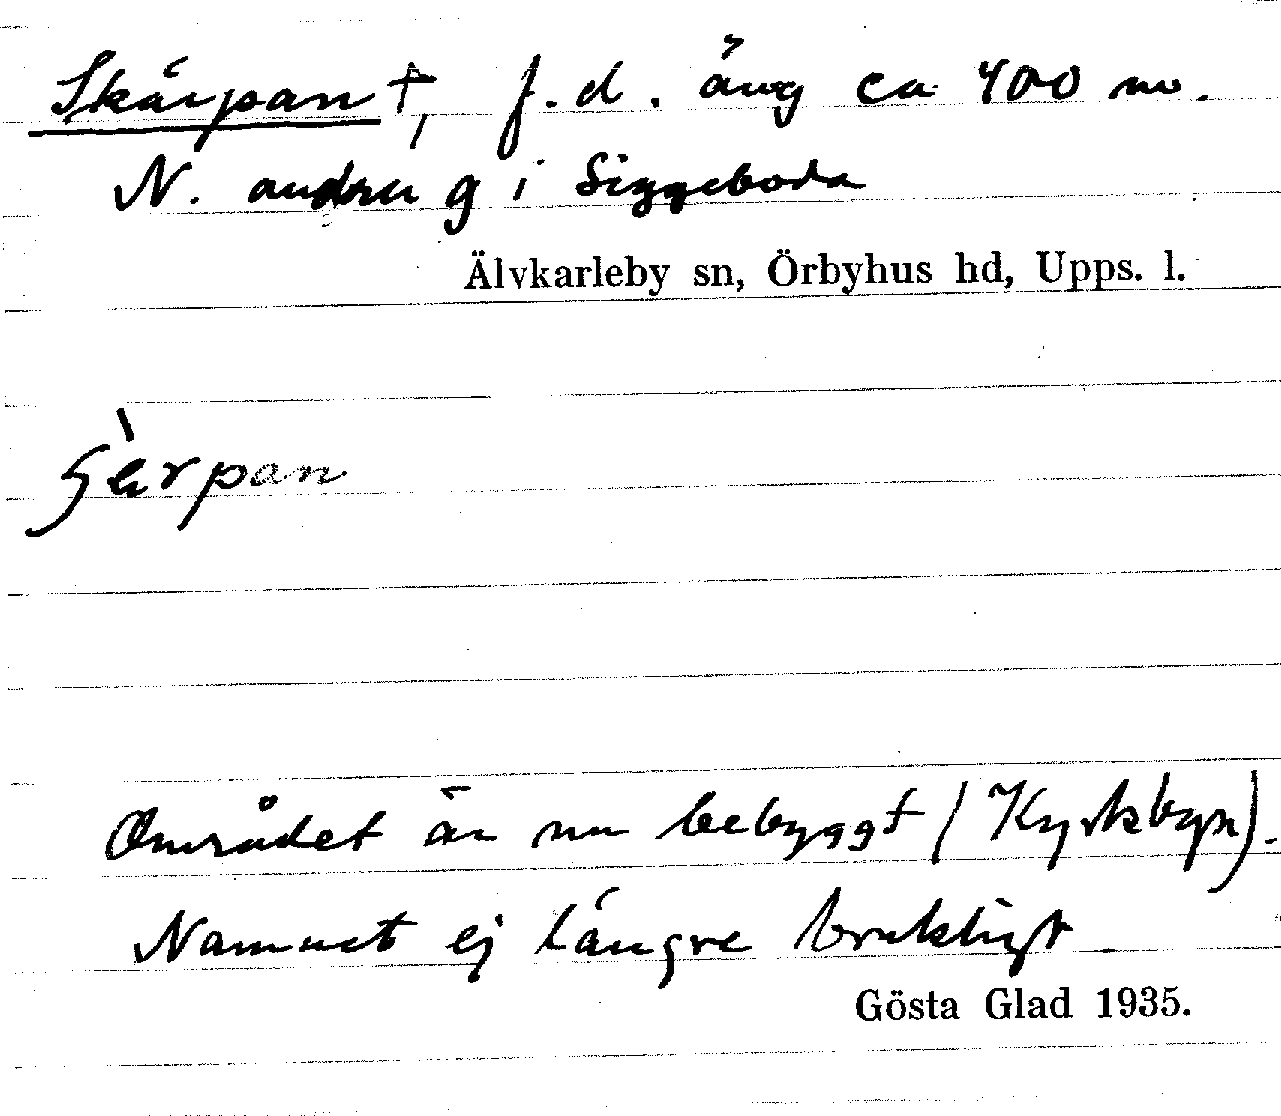 Skärpan †, f.d. äng ca 400 m.
N. andra g i Siggeboda
Älvkarleby sn, Örbyhus hd, Upps. l.
ʃèrpan
Området är nu bebyggt (Kyrkbyn).
Namnet ej längre brukligt
Gösta Glad 1935.